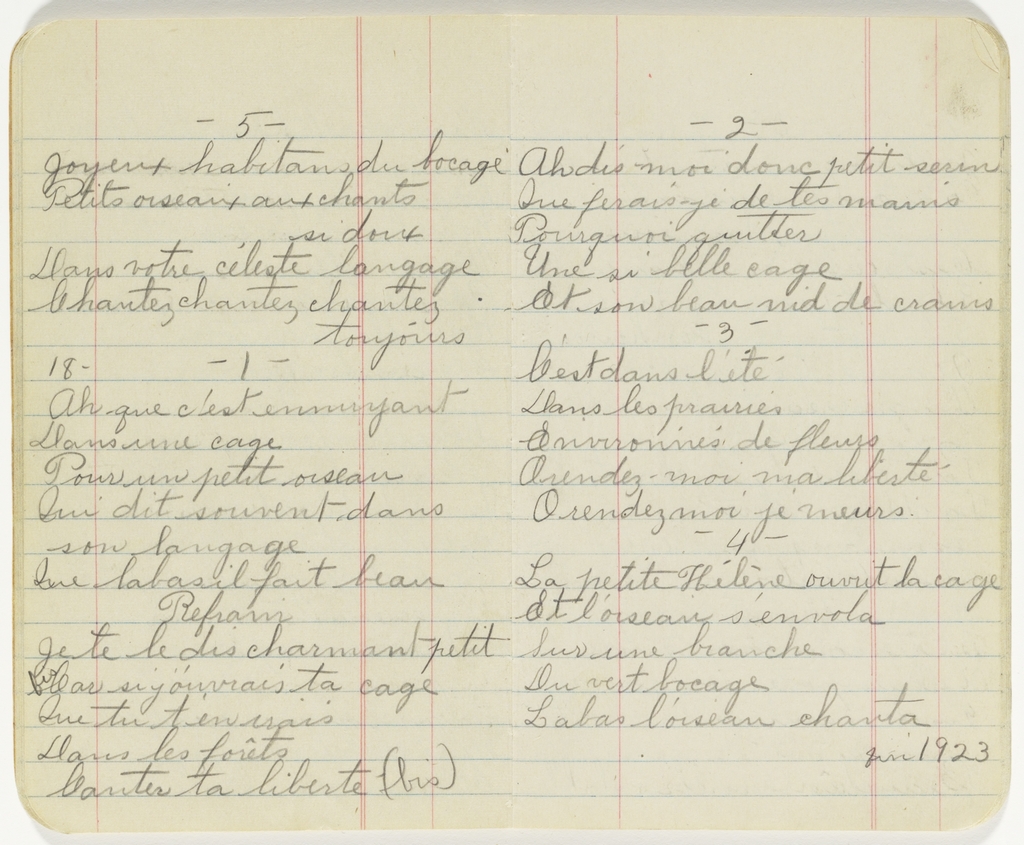 - 5 -
Joyeux habitans du bocage
Petits oiseaux aux chants
si doux
Dans votre céleste langage
Chantez chantez chantez
toujours
18- - 1 -
Ah que c'est ennuyant
Dans une cage
Pour un petit oiseau
Qui dit souvent dans
son langage
Que labas il fait beau
Refrain
Je te le dis charmant petit
bis Car si j'ouvrais ta cage
Que tu t'en irais
Dans les forêts
Canter ta liberte (bis)
- 2 -
Ah dis-moi donc petit serin
Que ferais-je de tes mains
Pourquoi quitter
Une si belle cage
Et son beau nid de crains
- 3 -
C'est dans l'été
Dans les prairies
Environnés de fleurs
O rendez-moi ma liberté
O rendez moi je meurs.
- 4 -
La petite Hélène ouvrit la cage
Et l'oiseau s'envola
Sur une branche
Du vert bocage
Labas l'oiseau chanta
1923